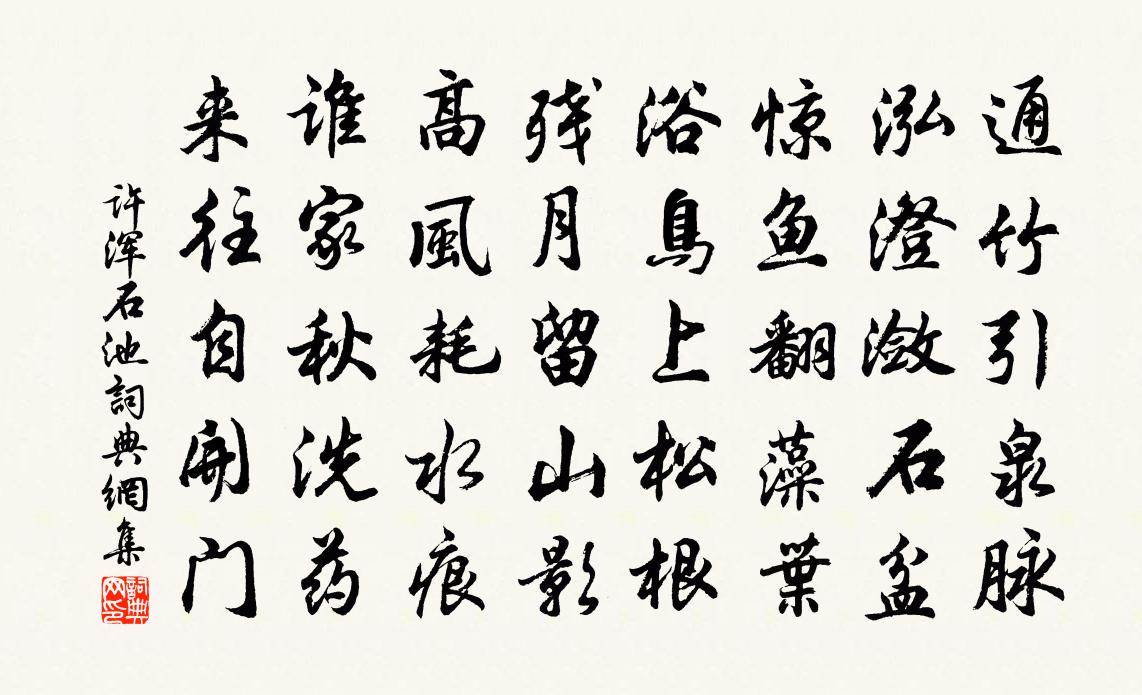 通竹引泉脉
泓澄潋石盆
惊鱼翻藻葉
浴鳥上松根
残月留山影
高風耗水痕
谁家秋洗药
来往自開门
许浑石池詞典網集
詞典网印